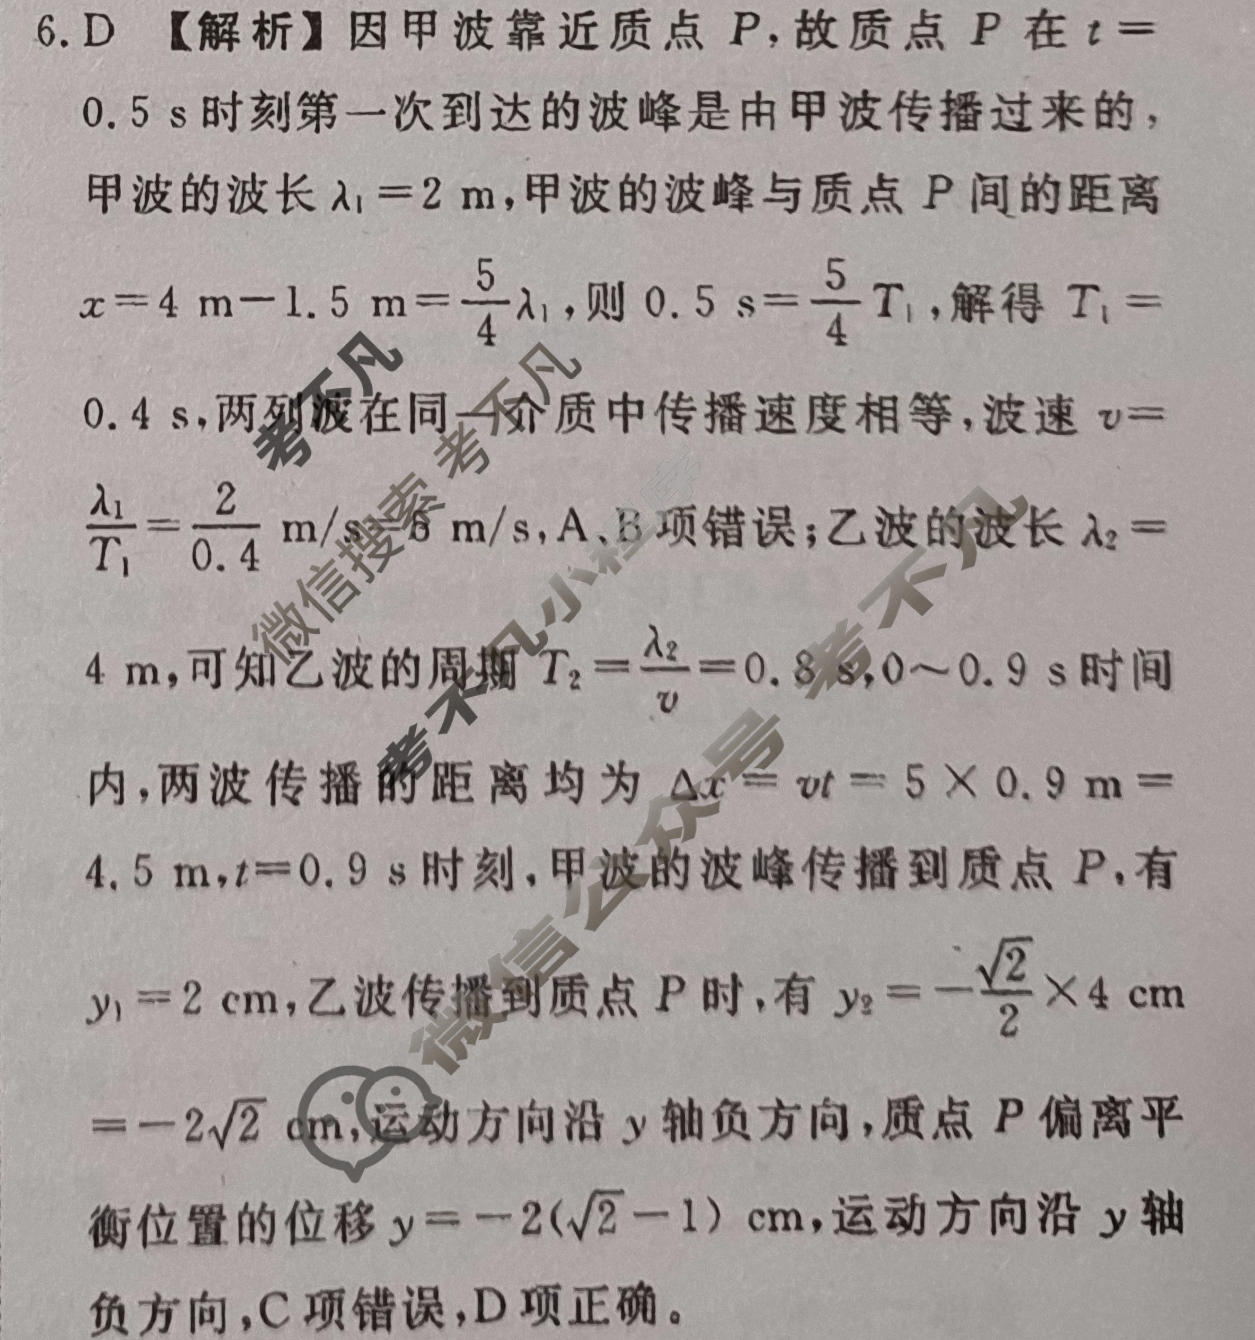 6. D 【解析】因甲波靠近质点 P,故质点 P 在 t=
0.5 s时刻第一次到达的波峰是由甲波传播过来的,
甲波的波长 λ₁=2 m,甲波的波峰与质点 P 间的距离
x=4 m-1.5 m=5/4 λ₁,则 0.5 s=5/4 T₁,解得 T₁=
0.4 s,两列波在同一介质中传播速度相等,波速 v=
λ₁/T₁=2/0.4 m/s=5 m/s,A、B项错误;乙波的波长 λ₂=
4 m,可知乙波的周期 T₂=λ₂/v=0.8 s,0~0.9 s时间
内,两波传播的距离均为 Δx=vt=5×0.9 m=
4.5 m,t=0.9 s时刻,甲波的波峰传播到质点 P,有
y₁=2 cm,乙波传播到质点 P 时,有 y₂=-√2/2×4 cm
=-2√2 cm,运动方向沿 y 轴负方向,质点 P 偏离平
衡位置的位移 y=-2(√2-1) cm,运动方向沿 y 轴
负方向,C项错误,D项正确。
考不凡
微信搜索 考不凡
考不凡小程序
微信公众号 考不凡